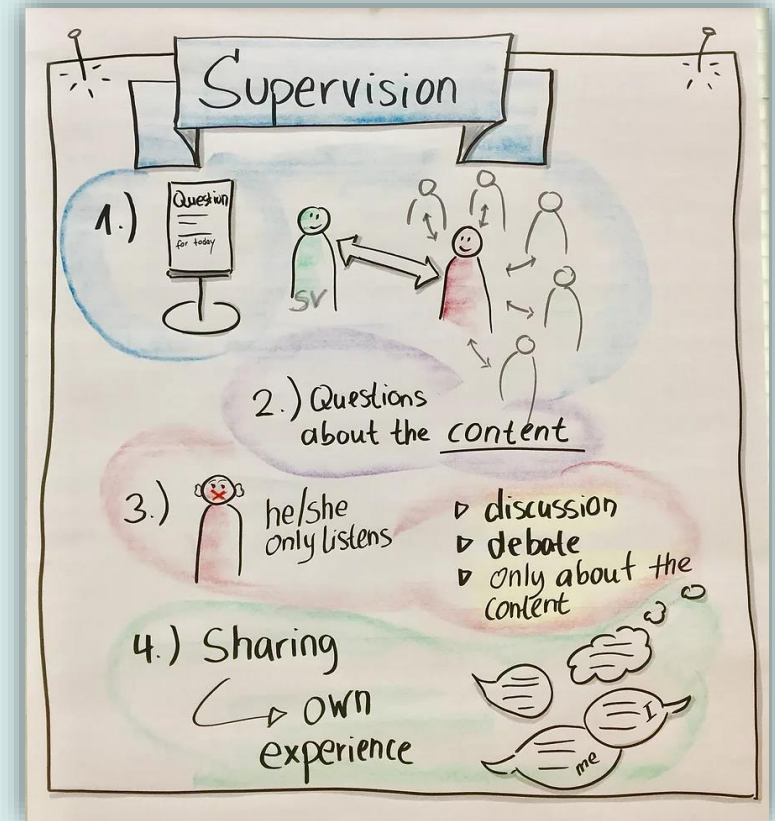 Supervision
1.)
Question
for today
SV
2.) Questions
about the content
3.)
he/she
only listens
▷ discussion
▷ debate
▷ only about the
content
4.) Sharing
↳ own
experience
I
me